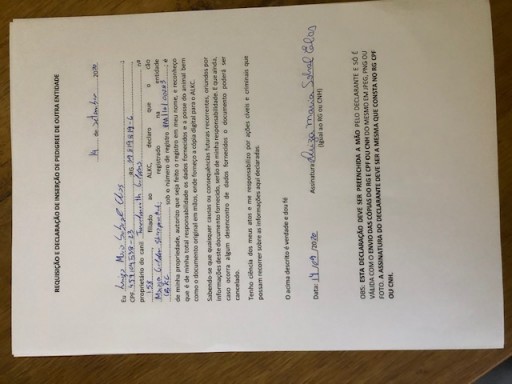 REQUISIÇÃO E DECLARAÇÃO DE INSERÇÃO DE PEDIGREE DE OUTRA ENTIDADE
14 de Setembro 20
Eu RG
CPF
proprietário do canil nº
filiado ao ALKC, declaro que o cão
registrado na entidade
sob o número de registro e
de minha propriedade, autorizo que seja feito o registro em meu nome, e reconheço
que é de minha total responsabilidade os dados fornecidos e a posse do animal bem
como o documento original em mãos, onde forneço a cópia digital para o ALKC.
Sabendo-se que quaisquer causas ou consequências futuras recorrentes, oriundos por
informações deste documento fornecido, serão de minha responsabilidade. E que ainda,
caso ocorra algum desencontro de dados fornecidos o documento poderá ser
cancelado.
Tenho ciência dos meus atos e me responsabilizo por ações cíveis e criminais que
possam recorrer sobre as informações aqui declaradas.
O acima descrito é verdade e dou fé
Data: /09 /20 Assinatura Maria
(igual ao RG ou CNH)
OBS. ESTA DECLARAÇÃO DEVE SER PREENCHIDA A MÃO PELO DECLARANTE E SÓ É
VÁLIDA COM O ENVIO DAS CÓPIAS DO RG E CPF OU CNH DO MESMO EM JPEG, PNG OU
FOTO. A ASSINATURA DO DECLARANTE DEVE SER A MESMA QUE CONSTA NO RG CPF
OU CNH.